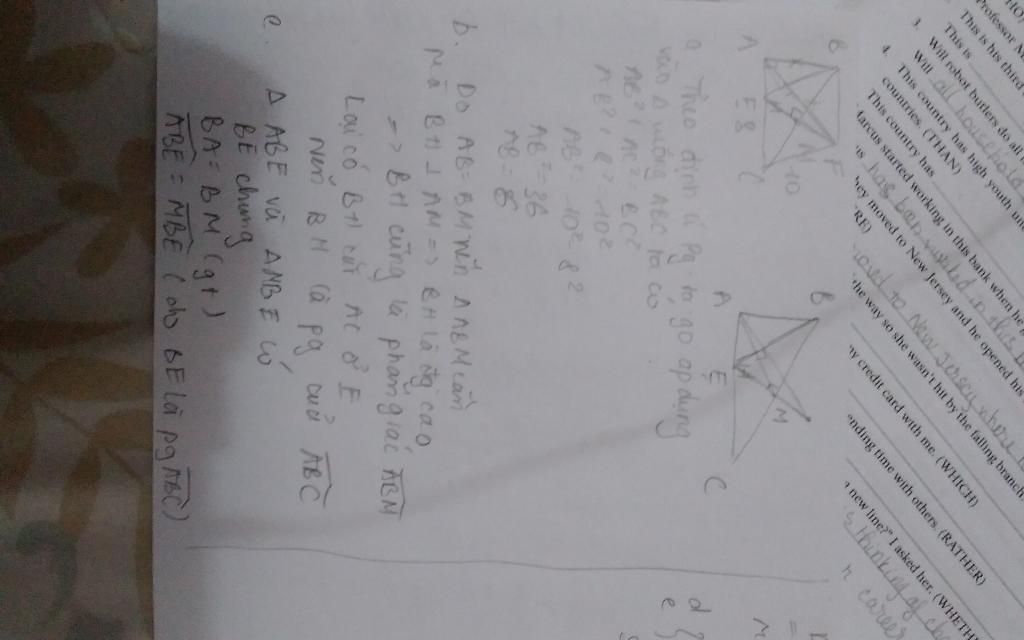 B
F
M
10
A
E
8
C
B
M
A
E
C
a. Theo định lí Pg-ta-go áp dụng
vào Δ vuông ABC ta có
AB² + AC² = BC²
AB² + 8² = 10²
AB² = 10² - 8²
AB² = 36
AB = 6
b. Do AB = BM nên Δ ABM cân
mà BH ⊥ AM => BH là đg cao
=> BH cũng là phân giác ABM
Lại có BH cắt AC ở E
nên BH là pg của ABC
c. Δ ABE và ΔMBE có
BE chung
BA = BM (gt)
ABE = MBE (do BE là pg ABC)
d
e
Professor A
This is his third
This is
3. Will robot butlers do all
Will all household
4. This country has high youth un
countries. (THAN)
This country has
Marcus started working in this bank when he
has been
in this
ey moved to New Jersey and he opened his
RE)
to New Jersey where
the way so she wasn't hit by the falling branch
ny credit card with me. (WHICH)
ending time with others. (RATHER)
a new line?" I asked her. (WHETHE
thinking of
career